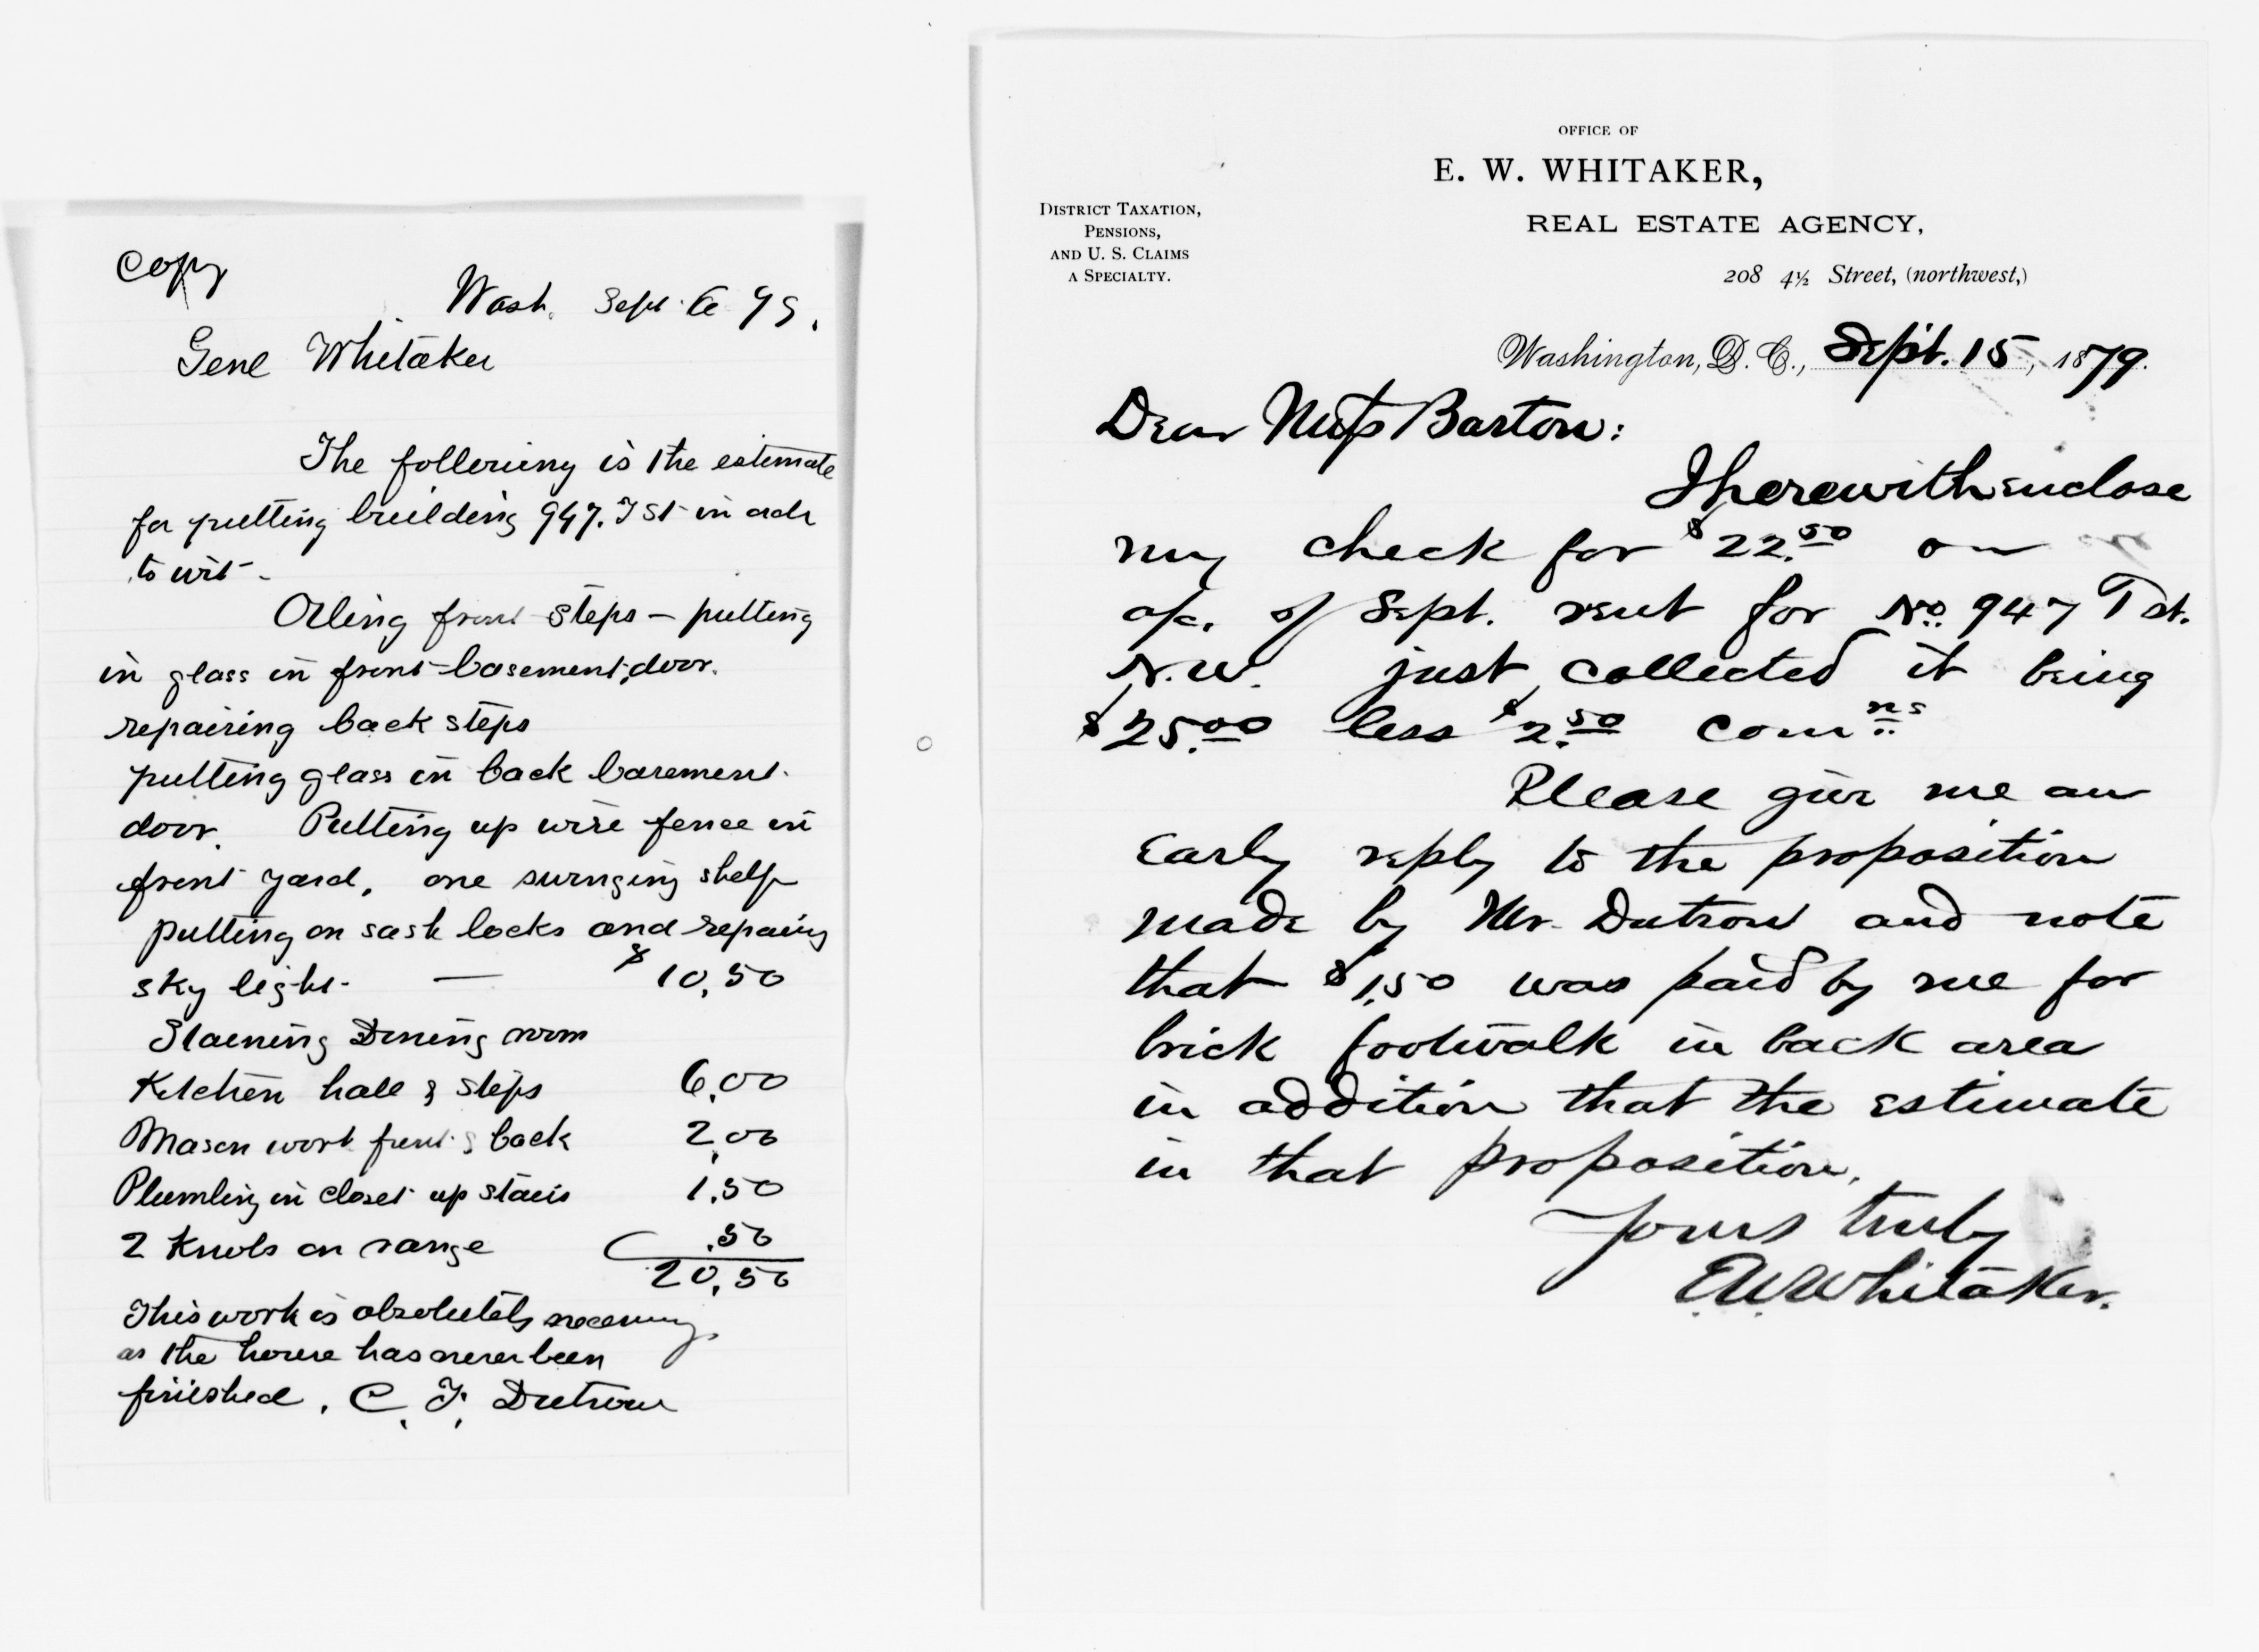 Copy
Wash. Sept. 6 79.
Genl Whitaker
The following is the estimate
for putting building 947. T St in order
to wit -
Oiling front steps – putting
in glass in front basement door.
repairing back steps
putting glass in back basement
door. Putting up wire fence in
front yard, one swinging shelf
putting on sash locks and repairing
sky light - — $10,50
Staining Dining room
Kitchen hall & steps 6,00
Mason work front & back 2,00
Plumbing in closet up stairs 1,50
2 Knobs on range .50
20,50
This work is absolutely necessary
as the house has never been
finished. C. F. Dutrow
OFFICE OF
E. W. WHITAKER,
REAL ESTATE AGENCY,
208 4½ Street, (northwest,)
DISTRICT TAXATION,
PENSIONS,
AND U. S. CLAIMS
A SPECIALTY.
Washington, D. C., Sept. 15, 1879.
Dear Miss Barton:
I herewith enclose
my check for $22.50 on
a/c. of Sept. rent for No. 947 T st.
N.W. just collected it being
$25.00 less $2.50 comns
Please give me an
early reply to the proposition
made by Mr. Dutrow and note
that $1,50 was paid by me for
brick footwalk in back area
in addition that the estimate
in that proposition.
Yours truly
E.W. Whitaker.